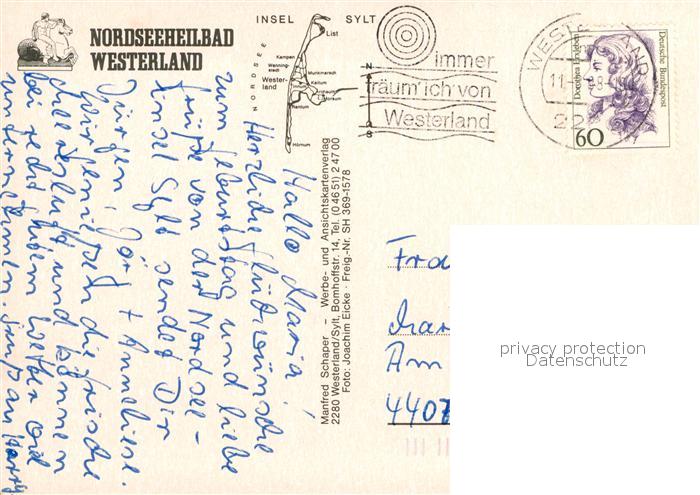 NORDSEEHEILBAD
WESTERLAND
INSEL SYLT
NORDSEE
List
Kampen
Wenning-
stedt
Munkmarsch
Wester-
land
Keitum
Morsum
Rantum
Hörnum
N
S
immer
träum' ich von
Westerland
WESTERLAND
11
22
60
Dorothea Erxleben
Deutsche Bundespost
Hallo Maria!
Herzliche Glückwünsche
zum Geburtstag und liebe
Grüße von der Nordsee-
Insel Sylt sendet Dir
Jürgen, Jör + Anneliese.
Wir genießen die frische
und können
bei Wetter
unternehmen. Gruß an Harry
Manfred Schaper – Werbe- und Ansichtskartenverlag
2280 Westerland/Sylt, Bomhoffstr. 14, Tel. (0 46 51) 2 47 00
Foto: Joachim Eicke · Freig.-Nr. SH 369-1578
Frau
Mari
Am
4407
privacy protection
Datenschutz